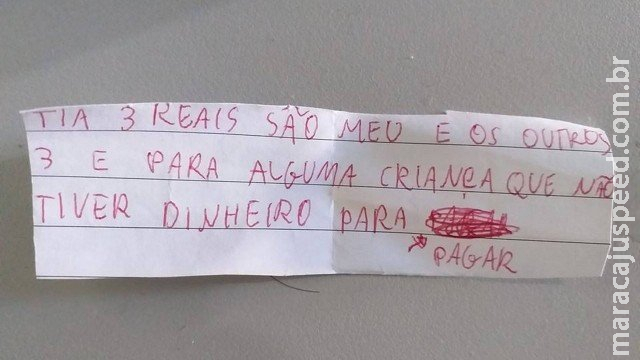 TIA 3 REAIS SÃO MEU E OS OUTROS
3 E PARA ALGUMA CRIANÇA QUE NÃO
TIVER DINHEIRO PARA
PAGAR
maracajuspeed.com.br